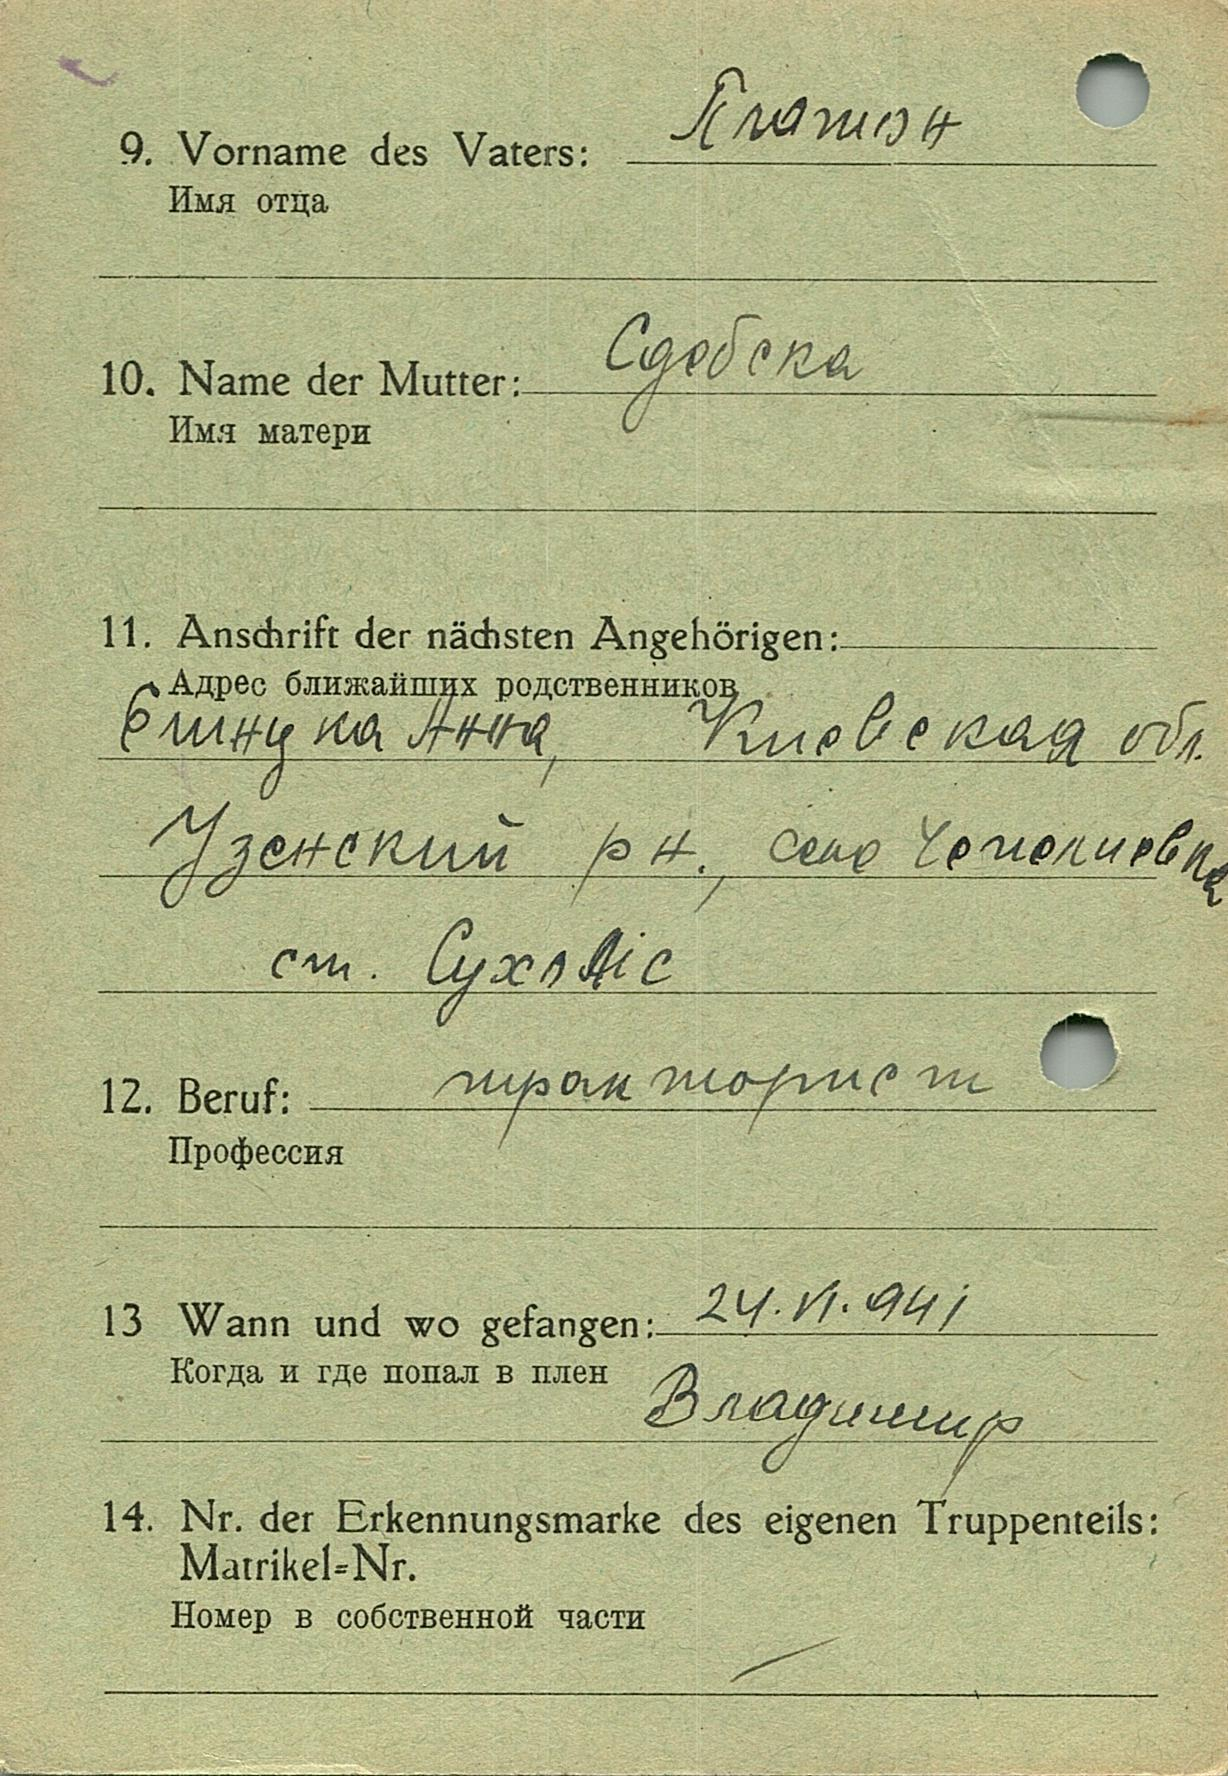 9. Vorname des Vaters: Платон
Имя отца
10. Name der Mutter: Сдебска
Имя матери
11. Anschrift der nächsten Angehörigen:
Адрес ближайших родственников
Анна, Киевская обл.
Узенский рн., село Чепелиевка
ст. Сухоліс
12. Beruf: тракторист
Профессия
13 Wann und wo gefangen: 24.VI.941
Когда и где попал в плен
Владимир
14. Nr. der Erkennungsmarke des eigenen Truppenteils:
Matrikel=Nr.
Номер в собственной части